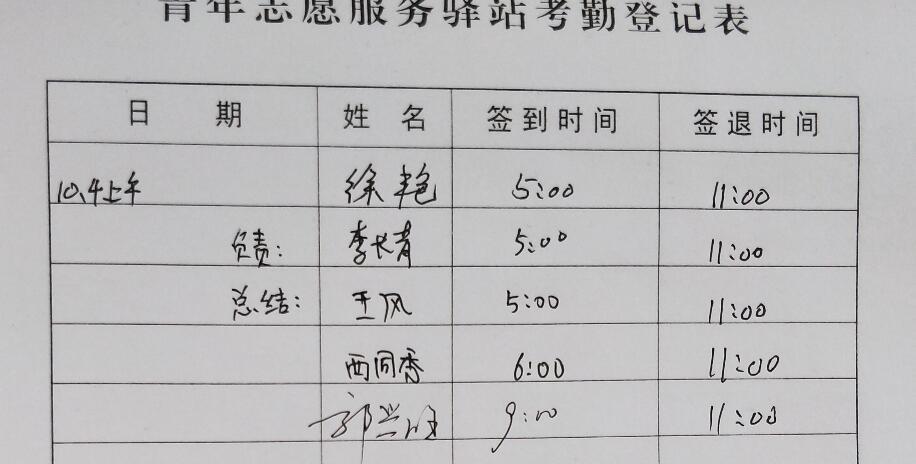 青年志愿服务驿站考勤登记表
日 期 姓 名 签到时间 签退时间
10.4上午 徐艳 5:00 11:00
负责: 李长青 5:00 11:00
总结: 王风 5:00 11:00
西同香 6:00 11:00
郭兰 9:00 11:00